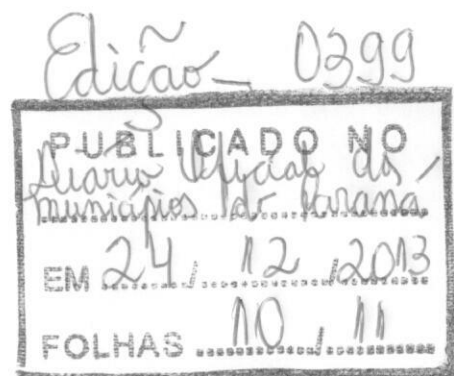 Edição - 0399
PUBLICADO NO
Diário Oficial dos
municípios do Paraná
EM 24 / 12 / 2013
FOLHAS 10 / 11